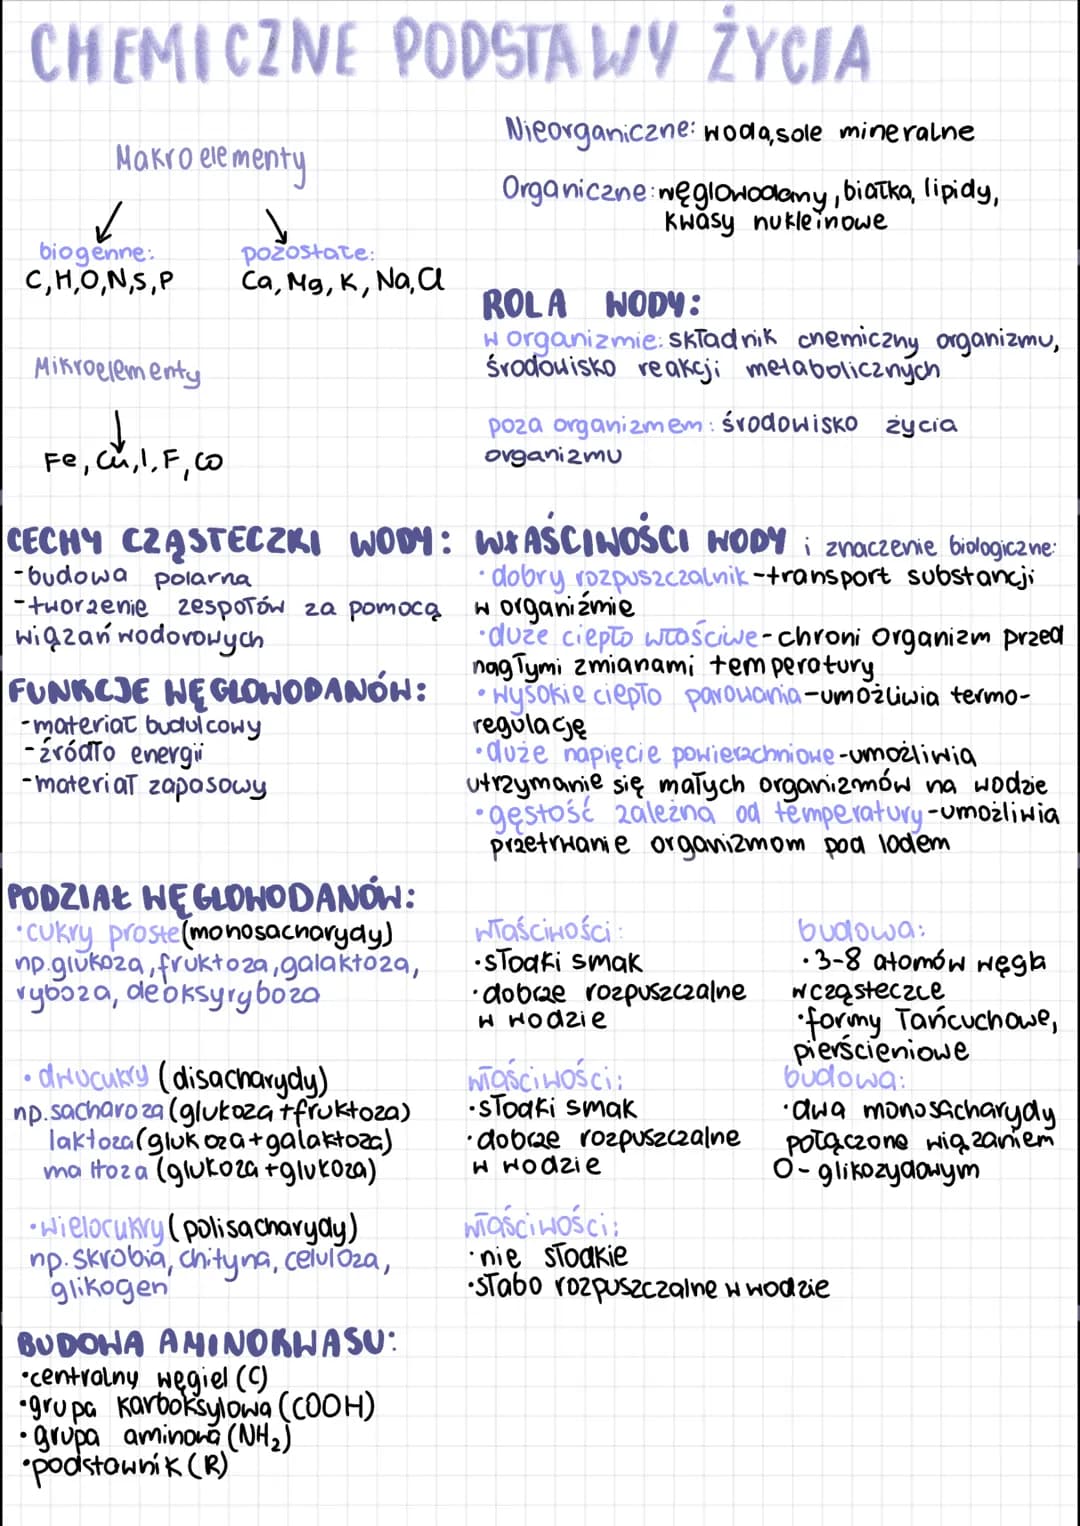 CHEMICZNE PODSTAWY ŻYCIA
Makroelementy
biogenne:
C,H,O,N,S,P
pozostałe:
Ca, Mg, K, Na, Cl
Mikroelementy
Fe, Cu, I, F, Co
Nieorganiczne: woda, sole mineralne
Organiczne: węglowodamy, białka, lipidy,
kwasy nukleinowe
ROLA WODY:
w organizmie: składnik chemiczny organizmu,
środowisko reakcji metabolicznych
poza organizmem: środowisko życia
organizmu
CECHY CZĄSTECZKI WODY:
-budowa polarna
-tworzenie zespołów za pomocą
wiązań wodorowych
FUNKCJE WĘGLOWODANÓW:
-materiał budulcowy
-źródło energii
-materiał zapasowy
WŁAŚCIWOŚCI WODY i znaczenie biologiczne:
•dobry rozpuszczalnik-transport substancji
w organiźmie
•duże ciepło właściwe-chroni organizm przed
nagłymi zmianami temperatury
•wysokie ciepło parowania-umożliwia termo-
regulację
•duże napięcie powierzchniowe-umożliwia
utrzymanie się małych organizmów na wodzie
•gęstość zależna od temperatury-umożliwia
przetrwanie organizmom pod lodem
PODZIAŁ WĘGLOWODANÓW:
•cukry proste (monosacharydy)
np.glukoza, fruktoza, galaktoza,
ryboza, deoksyryboza
właściwości:
•słodki smak
•dobrze rozpuszczalne
w wodzie
budowa:
•3-8 atomów węgla
w cząsteczce
•formy łańcuchowe,
pierścieniowe
•dwucukry (disacharydy)
np.sacharoza (glukoza+fruktoza)
laktoza (glukoza+galaktoza)
maltoza (glukoza+glukoza)
właściwości:
•słodki smak
•dobrze rozpuszczalne
w wodzie
budowa:
•dwa monosacharydy
połączone wiązaniem
O-glikozydowym
•wielocukry (polisacharydy)
np. skrobia, chityna, celuloza,
glikogen
właściwości:
•nie słodkie
•słabo rozpuszczalne w wodzie
BUDOWA AMINOKWASU:
•centralny węgiel (C)
•grupa karboksylowa (COOH)
•grupa aminowa (NH₂)
•podstawnik (R)